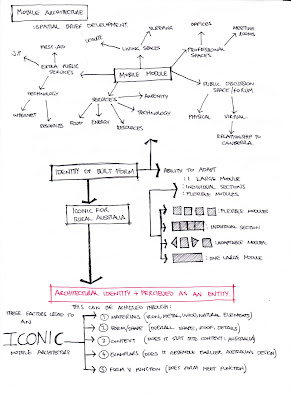 MOBILE ARCHITECTURE
:SPATIAL BRIEF DEVELOPMENT.
SLEEPING
LEISURE
LIVING SPACES
OFFICES
MEETING ROOMS
PROFESSIONAL SPACES
FIRST AID
EXTRA PUBLIC SERVICES
MOBILE MODULE
PUBLIC DISCUSSION SPACE/FORUM
TECHNOLOGY
SERVICES
AMENITY
TECHNOLOGY
PHYSICAL
VIRTUAL
INTERNET
RESOURCES
FOOD
ENERGY
RESOURCES
RELATIONSHIP TO CANBERRA
IDENTITY OF BUILT FORM
ABILITY TO ADAPT
: 1 LARGE MODULE
: INDIVIDUAL SECTIONS
: FLEXIBLE MODULES
ICONIC FOR RURAL AUSTRALIA
:FLEXIBLE MODULES
:INDIVIDUAL SECTION
:ADAPTABLE MODULES
:ONE LARGE MODULE
ARCHITECTURAL IDENTITY + PERCIEVED AS AN ENTITY
THIS CAN BE ACHIEVED THROUGH:
THESE FACTORS LEAD TO AN
ICONIC
MOBILE ARCHITECTURE
1 MATERIALS (IRON, METAL, WOOD, NATURAL ELEMENTS)
2 FORM/SHAPE (OVERALL SHAPE, ROOF, DETAILS)
3 CONTEXT (DOES IT SUIT SITE CONTEXT: AUSTRALIA)
4 EXEMPLARS (DOES IT RESEMBLE EARLIER AUSTRALIAN DESIGN)
5 FORM V FUNCTION (DOES FORM MEET FUNCTION)